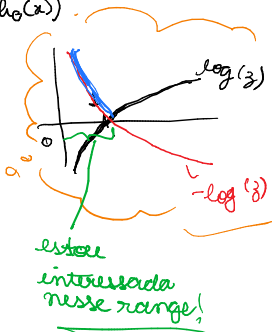 hθ(x))
log(z)
0
-log(z)
estou
interessada
nesse range!